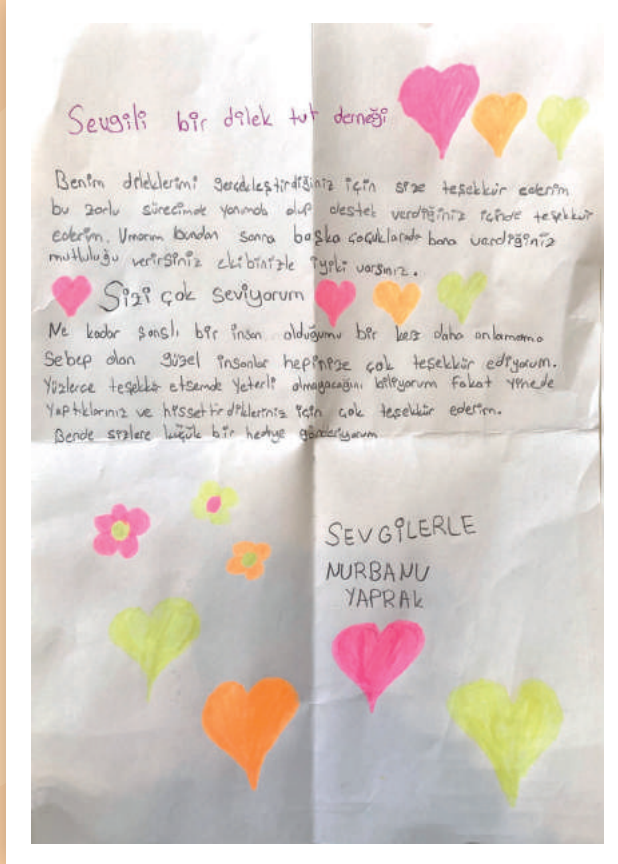 Sevgili bir dilek tut derneği
Benim dileklerimi gerçekleştirdiğiniz için size teşekkür ederim
bu zorlu sürecimde yanımda olup destek verdiğiniz içinde teşekkür
ederim. Umarım bundan sonra başka çocuklarada bana verdiğiniz
mutluluğu verirsiniz ekibinizle iyiki varsınız.
Sizi çok seviyorum
Ne kadar şanslı bir insan olduğumu bir kez daha anlamama
Sebep olan güzel insanlar hepinize çok teşekkür ediyorum.
Yüzlerce teşekkür etsemde yeterli olmayacağını biliyorum fakat yinede
yaptıklarınız ve hissettirdikleriniz için çok teşekkür ederim.
Bende sizlere küçük bir hediye gönderiyorum
SEVGİLERLE
NURBANU
YAPRAK